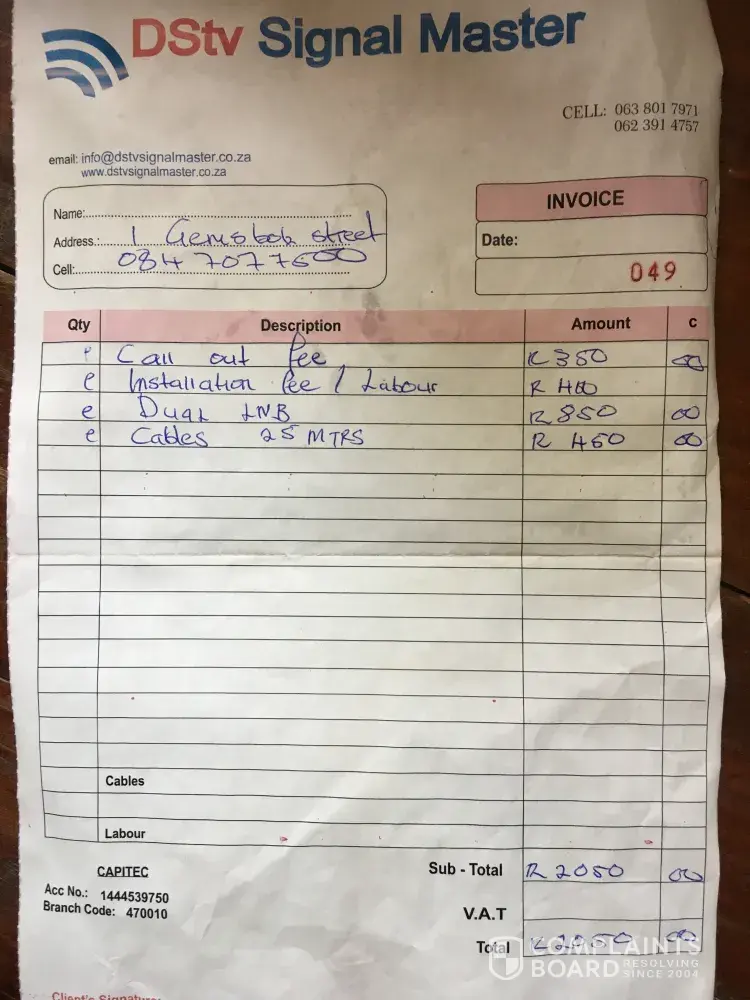 DStv Signal Master
CELL: 063 801 7971
062 391 4757
email: info@dstvsignalmaster.co.za
www.dstvsignalmaster.co.za
Name:
Address.: 1 Gemsbok street
Cell: 084 7077500
INVOICE
Date:
049
Qty Description Amount c
Call out fee R 350 00
Installation fee / Labour R 400
Dual LNB R 850 00
Cables 25 MTRS R 450 00
Cables
Labour
CAPITEC
Acc No.: 1444539750
Branch Code: 470010
Sub - Total R 2050 00
V.A.T
Total R 2050 00
COMPLAINTS
BOARD RESOLVING
SINCE 2004
Client's